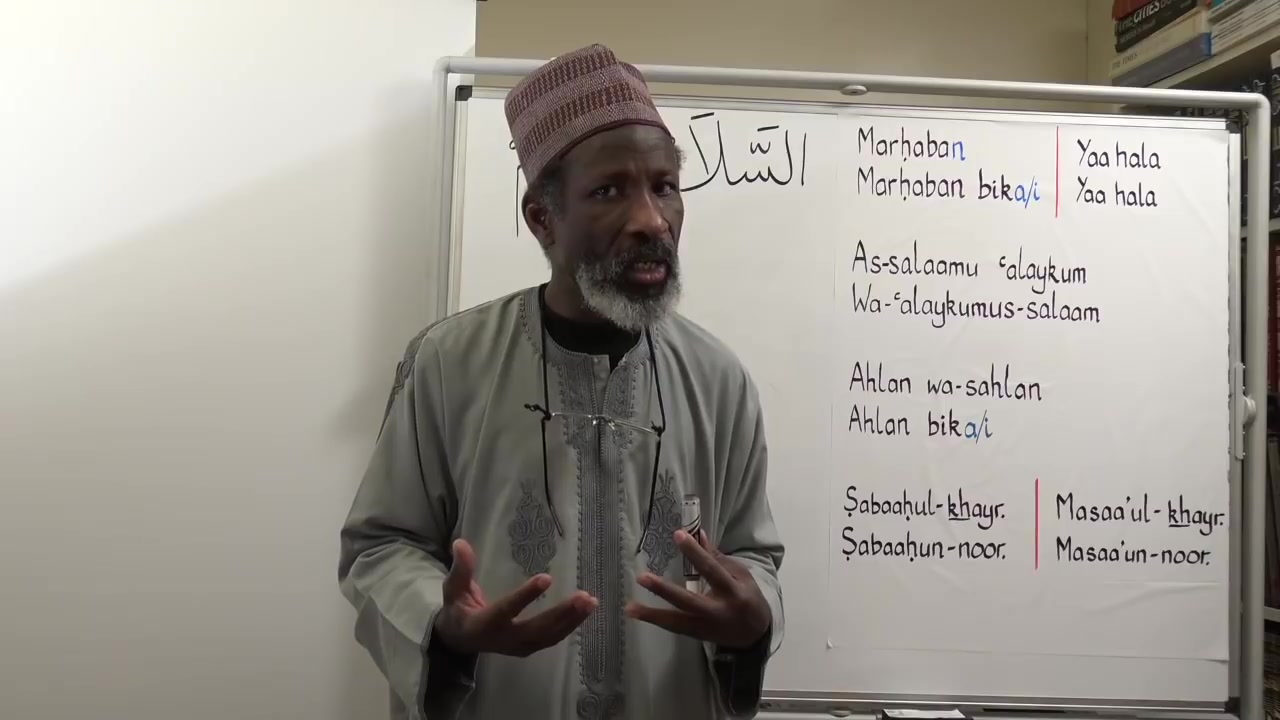 السَّلاَ
Marḥaban
Marḥaban bika/i
Yaa hala
Yaa hala
As-salaamu ʿalaykum
Wa-ʿalaykumus-salaam
Ahlan wa-sahlan
Ahlan bika/i
Ṣabaaḥul-khayr.
Ṣabaaḥun-noor.
Masaa'ul-khayr.
Masaa'un-noor.
THE CITIES